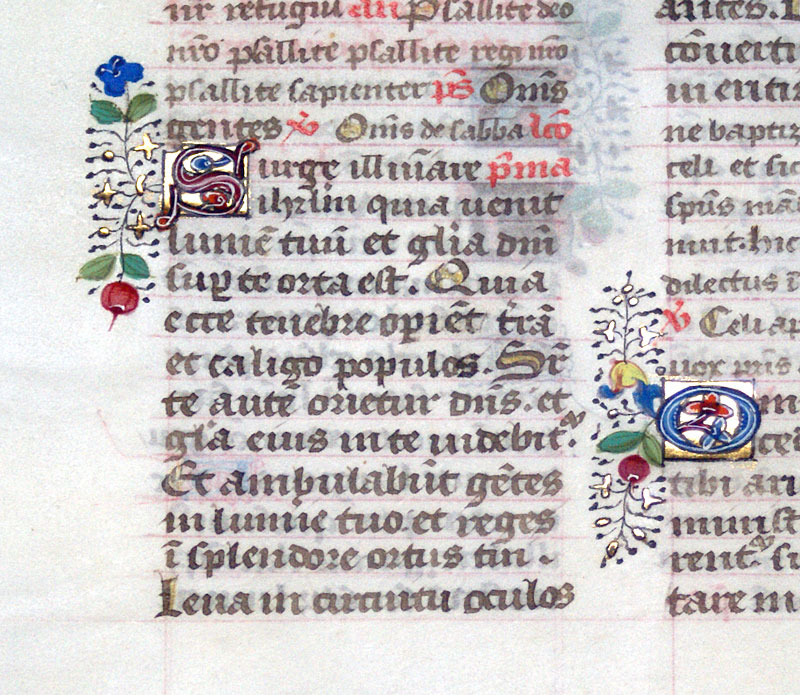 nr̄ refugiū añ Psallite deo
nr̄o psallite psallite regi nr̄o
psallite sapienter ps̄ Om̄s
gentes ℣ Om̄s de sabba lc̄o
Surge illumīare p̄ma
ihrl̄m quia uenit
lumē tuū et gl̄ia dn̄i
sup te orta est. Quia
ecce tenebre opiēt t̄rā
et caligo populos. Sr̄
te autē orietur dn̄s. et
gl̄ia eius in te uidebit᷑.
Et ambulabūt gētes
in lumīe tuo et reges
ī splendore ortus tui.
Leua in circuitu oculos
cōuerti
ne baptiz
celi et sic
sp̄us
dilectus
℣ Celi ap
uox p̄ris
tibi
minist
rent᷑. su
tare